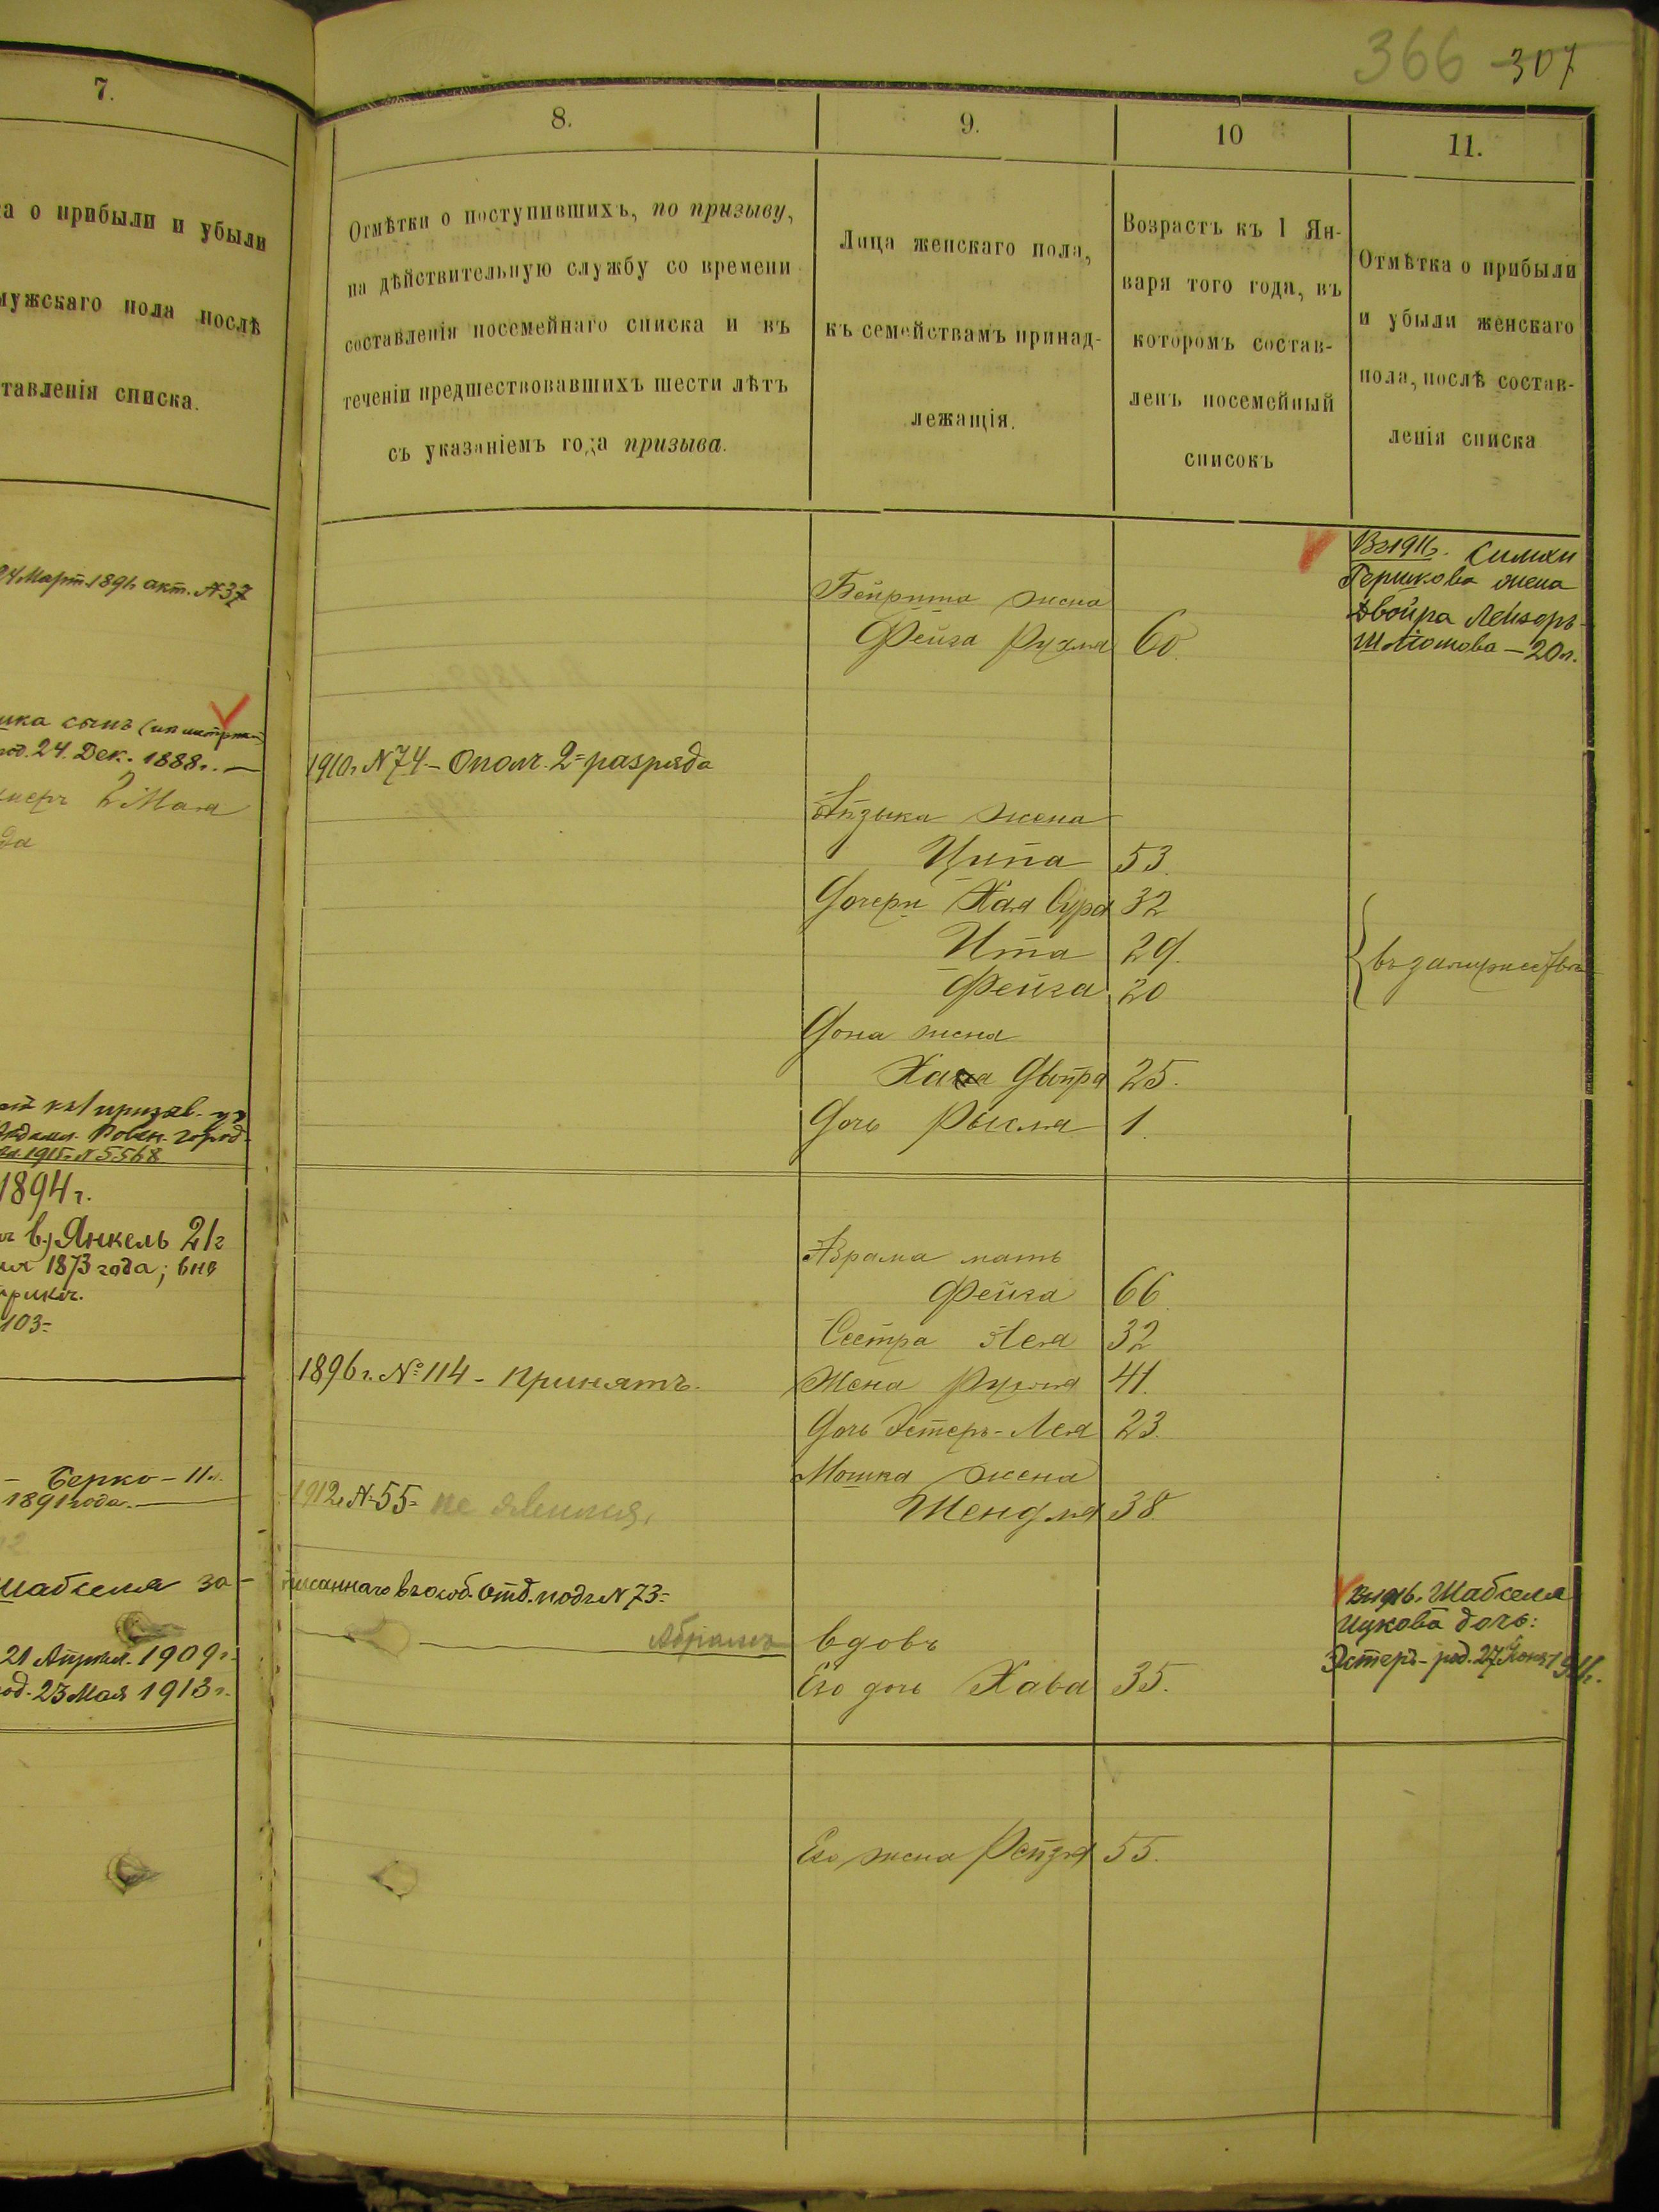 366 307
7.
а о прибыли и убыли
мужскаго пола послѣ
ставленія списка.
24 Март. 1891 г. акт. №37
сынъ
род. 24. Дек. 1888 г. —
2 Мая
да
1915 г. №5568
1894 г.
в.) Янкель 21 г
1873 года; вне
103=
— Берко — 11 л.
1891 года. —
Шабселя за-
21 Апрѣл. 1909 г.
род. 23 Мая 1913 г.
8.
Отмѣтки о поступившихъ, по призыву,
на дѣйствительную службу со времени
составленія посемейнаго списка и въ
теченіи предшествовавшихъ шести лѣтъ
съ указаніемъ года призыва.
1910 г. №74 — Ополч. 2= разряда
1896 г. № 114 - Принятъ.
1912 г. №55= не явился.
писаннаго въ особ. отд. подъ №73=
Абрамъ
9.
Лица женскаго пола,
къ семействамъ принад-
лежащія.
жена
Фейга Рухля
Айзыка жена
Ципа
Дочери Хая Сура
Ита
Фейга
жена
Двойра
Дочь Рыкля
Абрама мать
Фейга
Сестра Лея
Жена Рухля
Дочь Эстеръ-Лея
Мошка жена
Шендля
вдовъ
Его дочь Хава
Его жена Рейзя
10
Возрастъ къ 1 Ян-
варя того года, въ
которомъ состав-
ленъ посемейный
списокъ
60.
53.
32
29.
20
25.
1.
66
32
41.
23.
38.
35.
55.
11.
Отмѣтка о прибыли
и убыли женскаго
пола, послѣ состав-
ленія списка
Въ 1911 г. Симхи
Гершкова жена
Двойра Лейзоръ-
Шліомова — 20 л.
въ замужествѣ
Шабселя
Ицкова дочь:
Эстеръ — род. 27